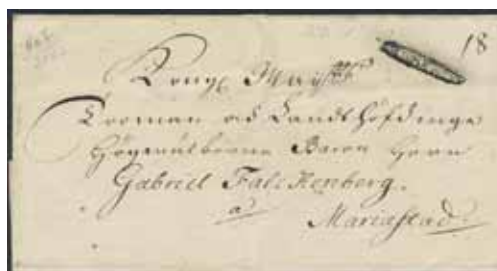 18
Kongl May:ttz
Troman och Landshöfdinge
Högwälborne Baron Herr
Gabriel Falckenberg.
a
Mariæstad